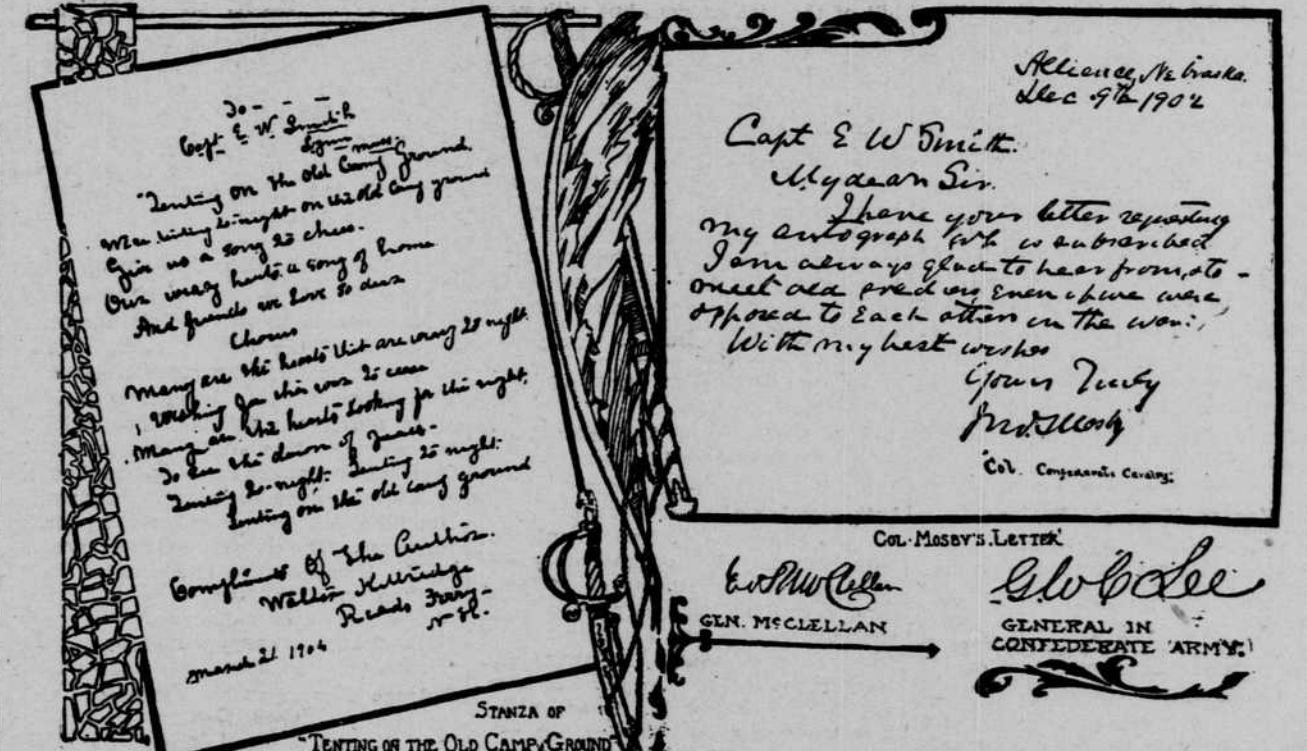 To -
Capt. E. W. Smith
Lynn Mass.
"Tenting on the Old Camp Ground.
We're tenting to-night on the old camp ground
Give us a song to cheer.
Our weary hearts a song of home
And friends we love so dear
Chorus
Many are the hearts that are weary to night
Wishing for the war to cease
Many are the hearts looking for the right,
To see the dawn of peace -
Tenting to-night. Tenting to night.
Tenting on the old camp ground
Compliments Of The Author.
Walter Kittredge
Reeds Ferry -
N. H.
March 21 1904
STANZA OF
"TENTING ON THE OLD CAMP GROUND"
Alliance, Nebraska.
Dec 9th 1902
Capt E W Smith.
My dear Sir.
I have your letter requesting
my autograph wh is subscribed
I am always glad to hear from, to -
meet old soldiers, even if we were
opposed to each other in the war.
With my best wishes
Yours Truly
Jno. S. Mosby
"Col. Confederate Cavalry."
COL. MOSBY'S LETTER
Geo B McClellan
GEN. McCLELLAN
G W C Lee
GENERAL IN
CONFEDERATE ARMY.